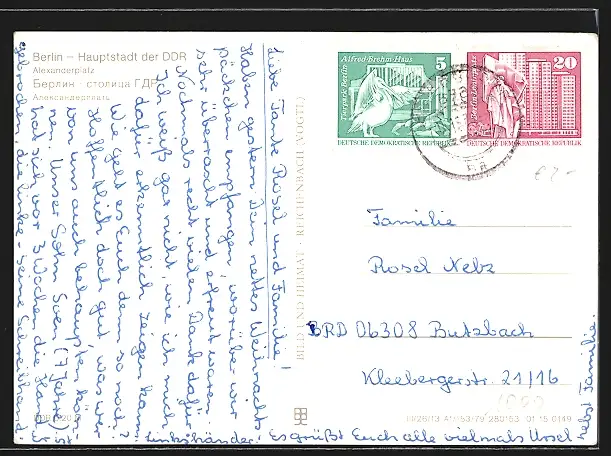 Berlin – Hauptstadt der DDR
Alexanderplatz
Берлин · столица ГДР
Александерплатц
Liebe Tante Rosel und Familie!
Haben gestern Dein nettes Weihnachts-
päckchen empfangen, worüber wir
sehr überrascht und erfreut waren.
Nochmals recht vielen Dank dafür.
Ich weiß gar nicht, wie ich mich
dafür erkenntlich zeigen kann.
Wie geht es Euch denn so noch?
Hoffentlich doch gut was wir
von uns auch behaupten kön-
nen. Unser Sohn Sven (7 Jahre)
hat sich vor 3 Wochen die Hand
gebrochen, die linke - seine Schreibhand. Er ist
Linkshänder. Es grüßt Euch alle vielmals Ursel
nebst Familie.
BILD UND HEIMAT · REICHENBACH (VOGTL)
Alfred-Brehm-Haus
5
Tierpark Berlin
DEUTSCHE DEMOKRATISCHE REPUBLIK
20
DEUTSCHE DEMOKRATISCHE REPUBLIK
Familie
Rosel Nebz
BRD 06308 Butzbach
Kleebergerstr. 21/16
153/79 280153 01 15 0149